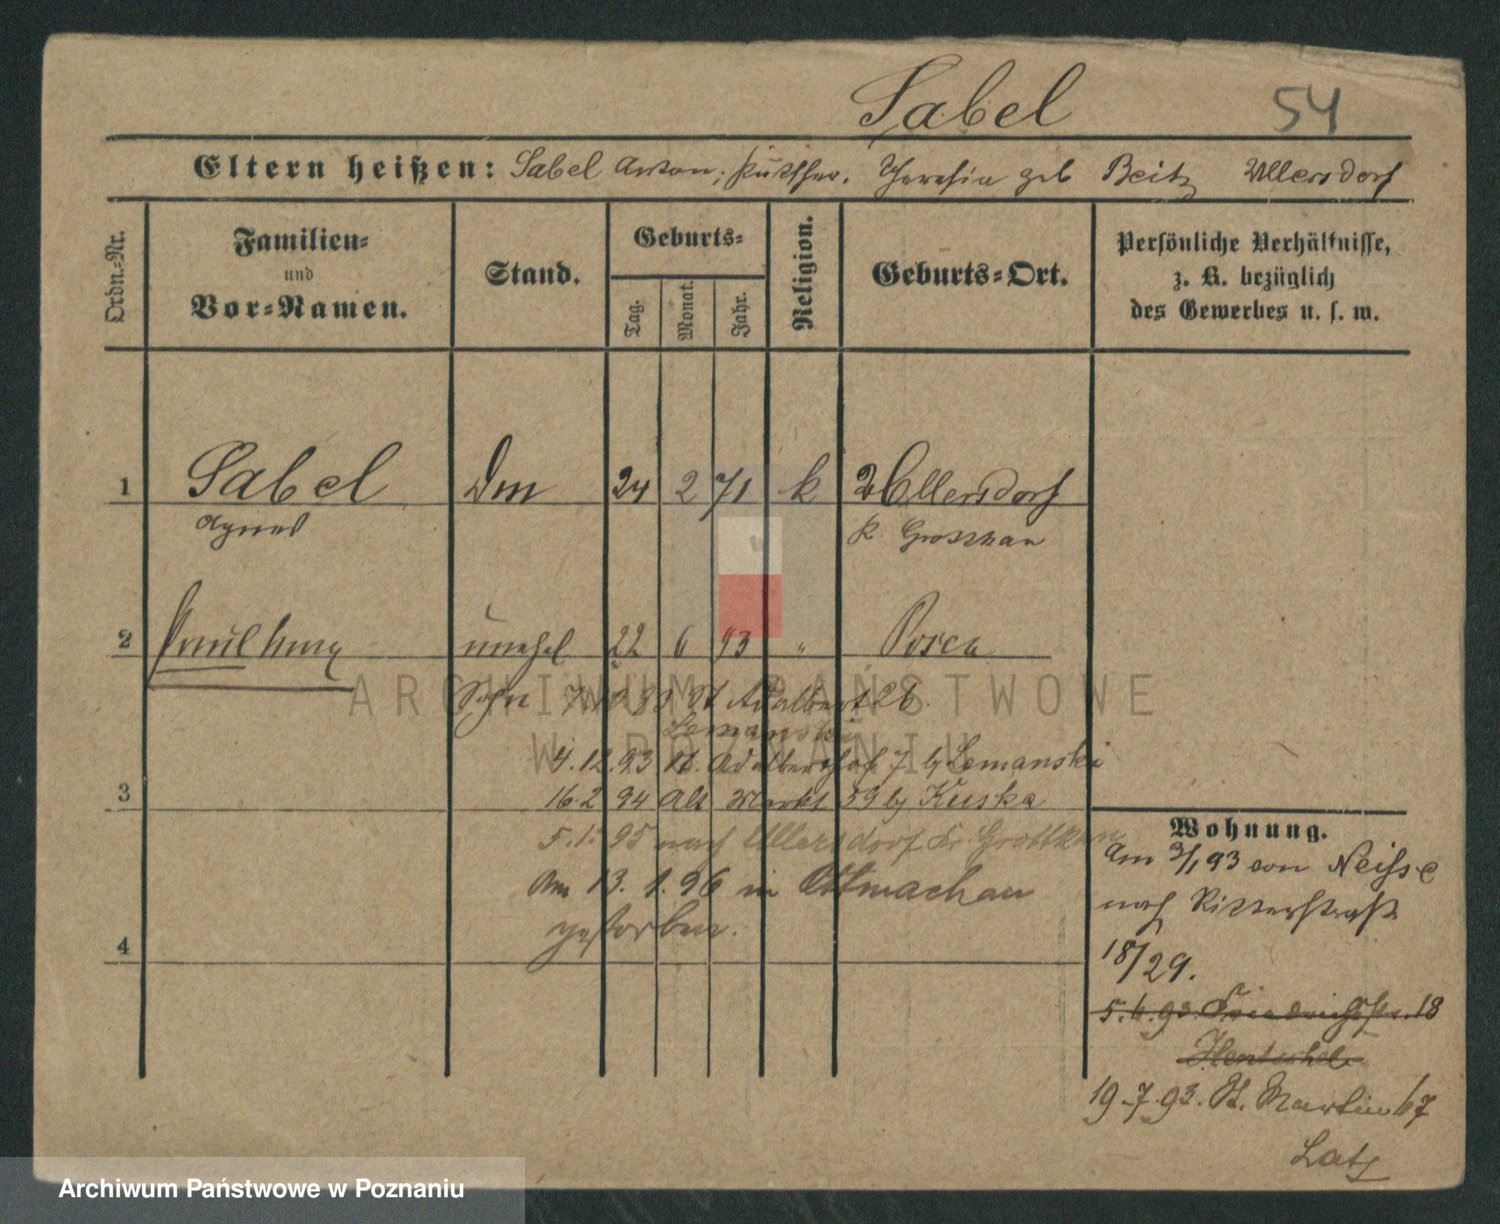 Sabel 54
Eltern heißen: Sabel Anton, Kutscher, Theresia geb Beitz Ullersdorf
Ordn.-Nr.
Familien-
und
Vor-Namen.
Stand.
Geburts-
Tag.
Monat.
Jahr.
Religion.
Geburts-Ort.
Persönliche Verhältnisse,
z. B. bezüglich
des Gewerbes u. s. w.
1 Sabel Dm 24 2 71 k Ullersdorf
Agnes K. Grottkau
2 Paul unehel 22 6 93 " Posen
Sohn St Adalbert 26.
Lemanski
4.12.93 St. Adalbert 7 b/ Lemanski
3 16.2 94 Alt Markt 39 b/ Kuska
5.1.95 nach Ullersdorf Kr. Grottkau
Am 13. 1. 96 in Ottmachau
gestorben.
4
Wohnung.
Am 3/1 93 von Neisse
nach Ritterstraße
18/29.
5.6.93. Friedrichstr. 18
Hentschel
19.7.93. St. Martin 67
Latz
ARCHIWUM PAŃSTWOWE
W POZNANIU
Archiwum Państwowe w Poznaniu